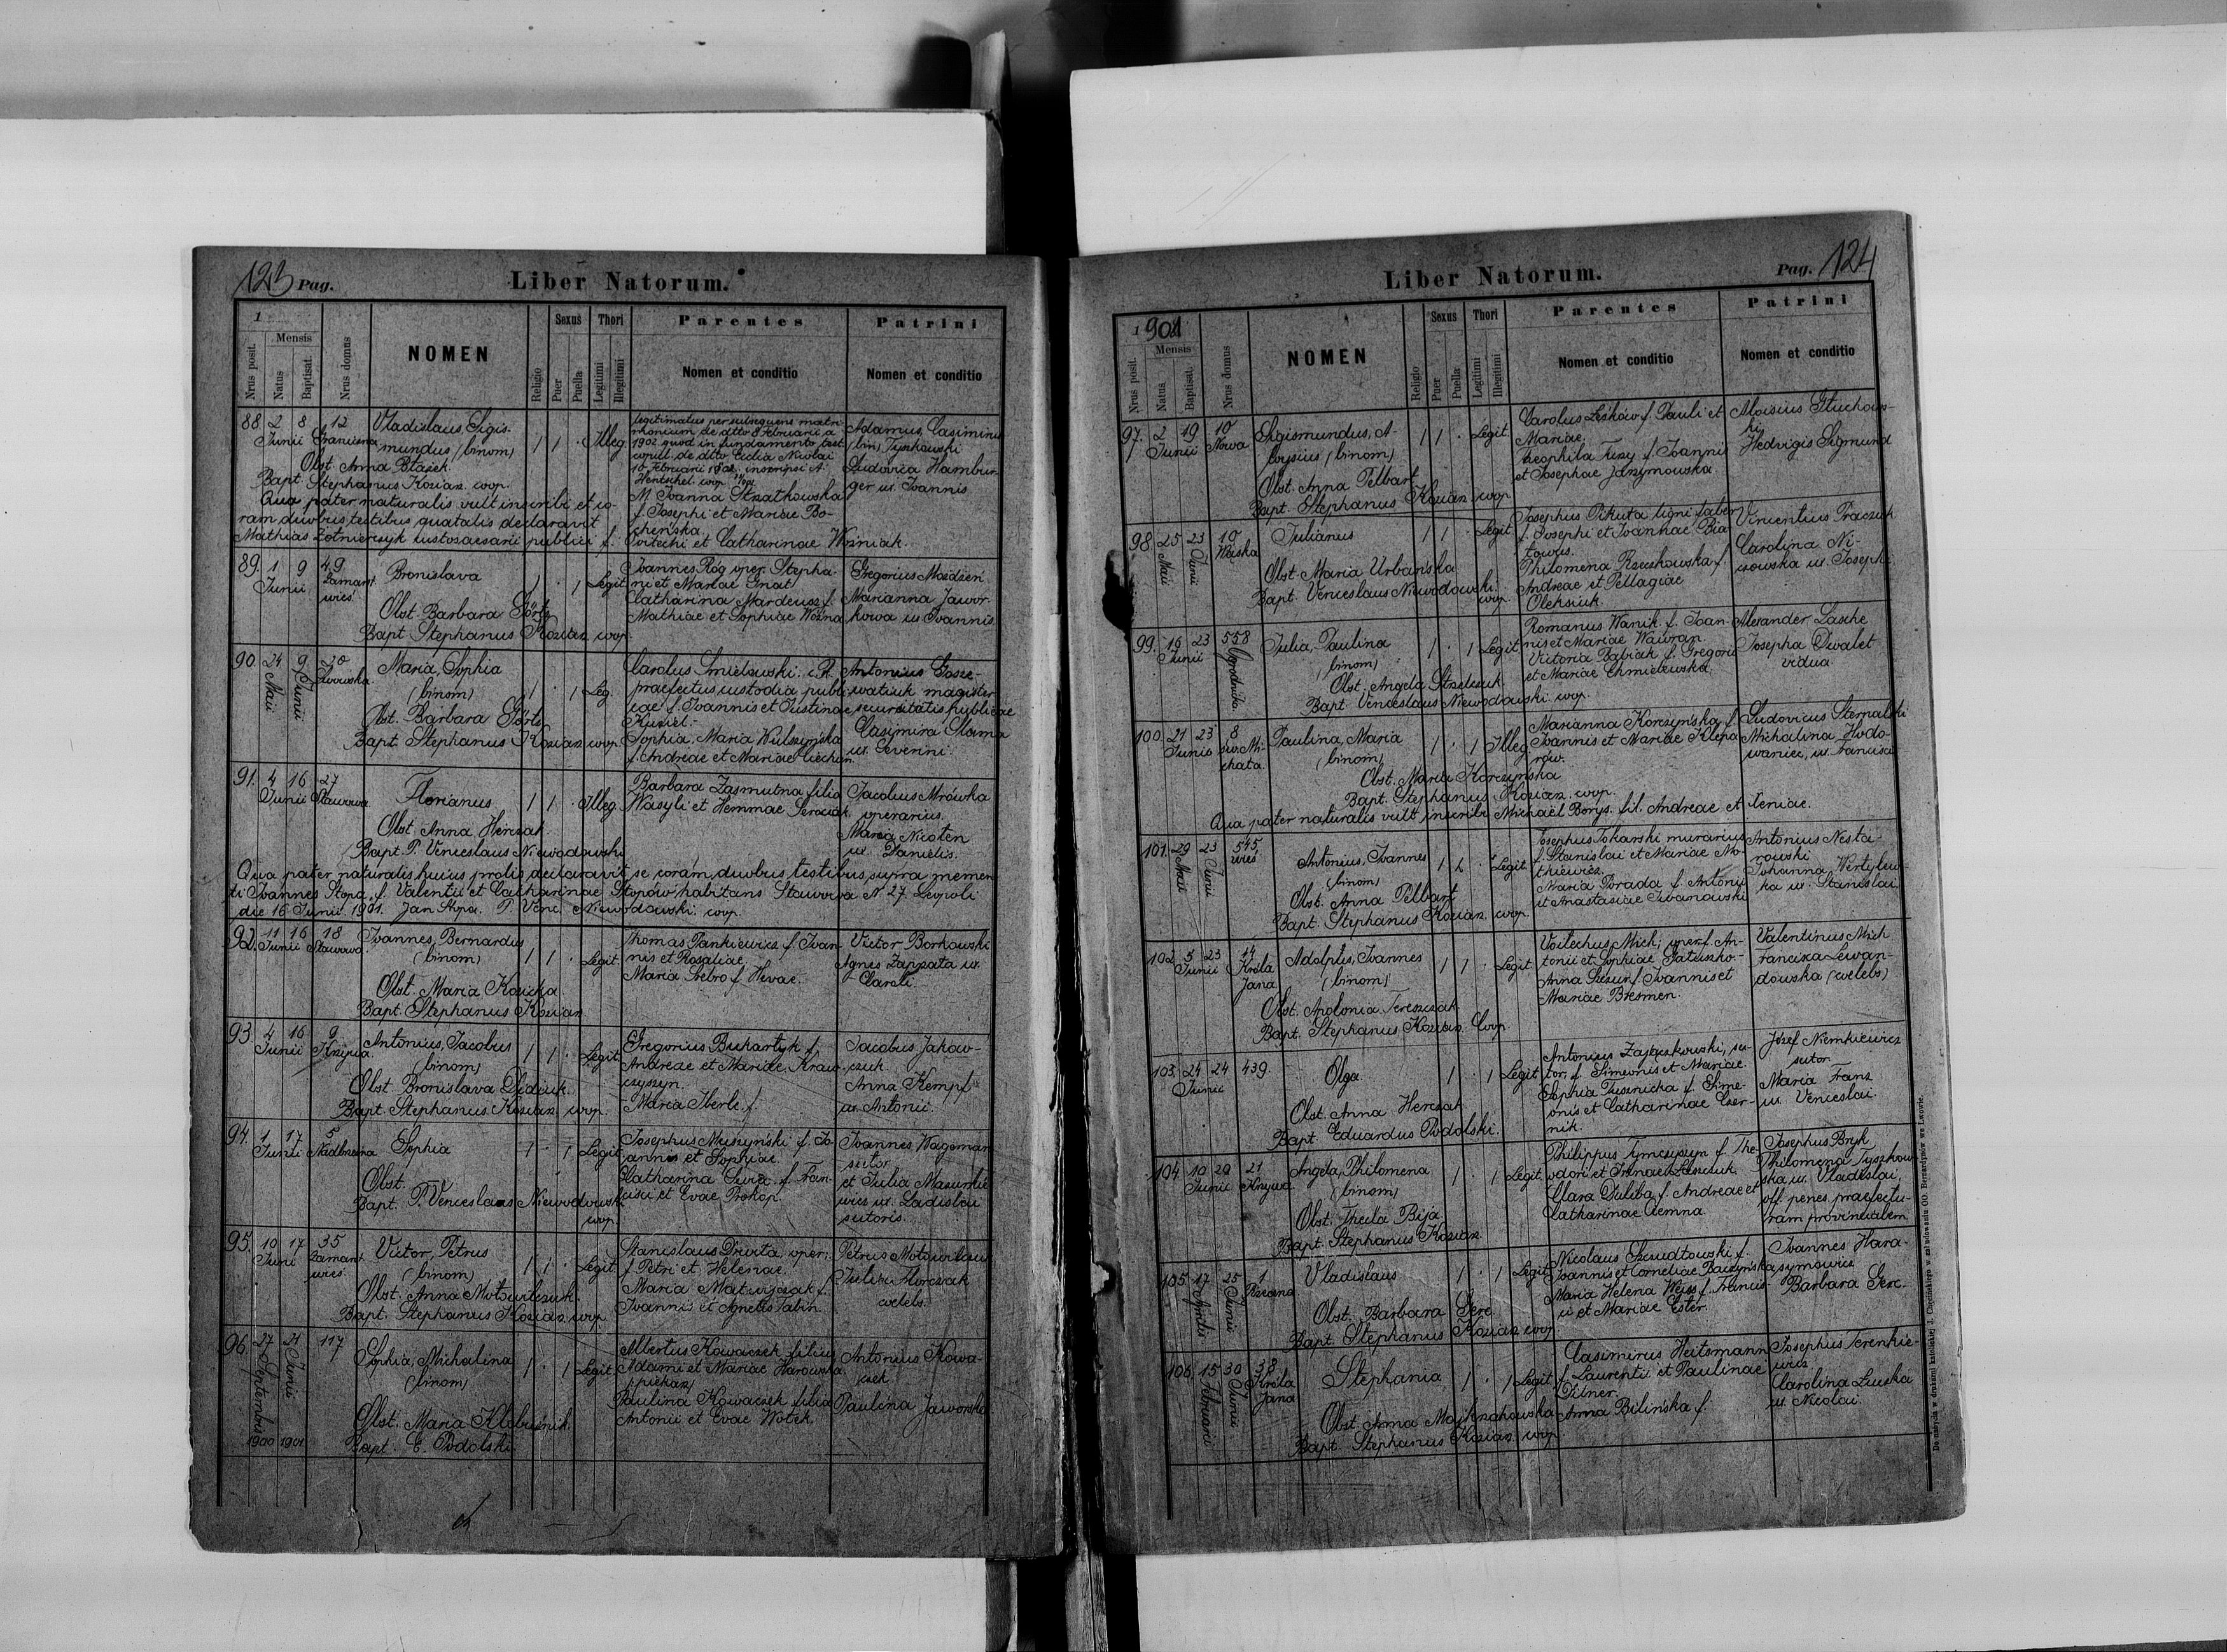 123 Pag.
Liber Natorum.
1
Mensis
Nrus posit.
Natus
Baptisat.
Nrus domus
NOMEN
Religio
Sexus
Puer
Puella
Thori
Legitimi
Illegitimi
Parentes
Nomen et conditio
Patrini
Nomen et conditio
88. 2 Junii 8 12
Vladislaus, Sigis-
mundus (binom)
1 1 . Illeg
Obst. Anna
Bapt. Stephanus Kozian coop.
legitimatus per subsequens matri-
monium de dtto 8 Februarii a
1902 quod in fundamento test.
M. Joanna Strzatkowska
f. Josephi et Mariae Bo-
cheńska
Adamus, Casimirus
(bin) Tyszkowski
Ludovica Hambur-
ger ux. Joannis
Qua pater naturalis vult inscribi et co-
ram duobus testibus declaravit
Mathias Żołnierczyk custos aesarii publici f.
et Catharinae Woźniak.
89. 1 Junii 9 49 Zamarst.
Bronislava
1 . 1 Legit
Obst. Barbara Görtz
Bapt. Stephanus Kozian coop.
Joannes Róg oper. Stepha-
ni et Mariae Gnat
Catharina Mardeusz f.
Mathiae et Sophiae Woźna
Gregorius Mazdzeń
Marianna Jawor-
kowa ux Joannis
90. 24 Maii 9 Junii 20
Maria, Sophia
(binom)
1 . 1 Leg.
Obst. Barbara Görtz
Bapt. Stephanus Kozian coop
Carolus Smielowski. c.R.
praefectus custodia publi-
cae f. Joannis et Justinae
Kuziel.-
Sophia, Maria Wilszyńska
f. Andreae et Mariae
Antonius Gosze-
watiuk magister
securitatis publicae
Casimira Slama
ux. Severini.
91. 4 Junii 16 27 Stawowa
Florianus
1 1 . Illeg
Obst. Anna Herczak.
Bapt. P. Venceslaus Niewodowski
Barbara Zasmutna filia
Wasyli et Hemmae
Jacobus Mrówka
operarius.
Maria Nicoten
ux. Danielis.
Qua pater naturalis huius prolis declaravit se coram duobus testibus supra memora-
ti Joannes Stopa. f. Valentii et Catharinae Stopów habitans Stawowa N 27 Leopoli
die 16 Junii 1901. Jan Stopa. P. Venc. Niewodowski. coop.
92. 11 Junii 16 18 Stawowa
Joannes, Bernardus
(binom)
1 1 . Legit
Obst. Maria Kozicka
Bapt. Stephanus Kozian
Thomas Pankiewicz f. Joan-
nis et Rosaliae
Maria Srebro f. Hevae.
Victor Borkowski
Agnes Zappata ux.
Caroli
93. 4 Junii 16 9 Krzywa.
Antonius, Jacobus
(binom)
1 1 . Legit
Obst. Bronislava Dedziuk
Bapt. Stephanus Kozian coop.
Gregorius Buhartyk f.
Andreae et Mariae Kraw-
czyszyn.
Maria Iberle f.
Jacobus Jakow-
czuk
Anna Kempf
ux. Antonii.
94. 1 Junii 17 5
Sophia
1 - 1 Legit
Obst.
Bapt. P. Venceslaus Niewodowski
coop.
Josephus Muszyński f. Jo-
annis et Sophiae.
Catharina f. Fran-
cisci et Evae Prokop.
Joannes Wagoman
sutor
et Julia
ux. Ladislai
sutoris.
95. 10 Junii 17 35 Zamarst.
Victor, Petrus
(binom)
1 1 . Legit
Obst. Anna Motowilczuk.
Bapt. Stephanus Kozian coop
Stanislaus oper.
f. Petri et Helenae.
Maria f.
Joannis et Agnetis
Petrus
coelebs.
96. 27 Septembris 1900 21 Junii 1901 117
Sophia, Michalina
(binom)
1 . 1 Legit
Obst. Maria
Bapt. E. Podolski
Albertus Kowaczek filius
Adami et Mariae Harowska
(piekarz)
Paulina Kowaczek filia
Antonii et Evae Wotek
Antonius Kowa-
czek
Paulina Jaworska
Liber Natorum.
Pag. 124
1901
Mensis
Nrus posit.
Natus
Baptisat.
Nrus domus
NOMEN
Religio
Sexus
Puer
Puella
Thori
Legitimi
Illegitimi
Parentes
Nomen et conditio
Patrini
Nomen et conditio
97. 2 Junii 19 10 Nowa
Sigismundus, A-
loysius (binom)
1 1 . Legit
Obst. Anna Pelbart
Bapt. Stephanus Kozian coop
Carolus Leśków f. Pauli et
Mariae.
Theophila Tuzy f. Joannis
et Josephae Jarzymowska
Aloisius Gluchow-
ski
Hedvigis Sigmund
98. 25 Maii 23 Junii 10
Julianus
1 1 . Legit
Obst Maria Urbańska
Bapt. Venceslaus Niewodowski.
coop.
Josephus Pikuta ligni faber
f. Josephi et Joannae
Philomena Rzeszkowska f.
Andreae et Pellagiae
Oleksiuk.
Vincentius Praczuk
Carolina Ni-
ux. Josephi
99. 16 Junii 23 558
Julia, Paulina
(binom)
1 . 1 Legit
Obst. Angela
Bapt. Venceslaus Niewodowski coop.
Romanus Wanik f. Joan-
nis et Mariae Wawran.
Victoria Babiak f. Gregorii
et Mariae Chmielewska.
Alexander Lasche
Josepha
vidua.
100. 21 Junii 23 8 św. Mi-
chała
Paulina, Maria
(binom)
1 . 1 Illeg
Obst. Maria Korczyńska
Bapt. Stephanus Kozian. coop.
Marianna Korczyńska f.
Joannis et Mariae Klepa-
rów.
Ludovicus Sterpalski
Michalina Hodo-
waniec, ux. Francisci
Qua pater naturalis vult inscribi Michaël Borys. fil. Andreae et Xeniae.
101. 29 Maii 23 Junii 545
Antonius, Joannes
(binom)
1 1 . Legit
Obst. Anna Pelbart
Bapt. Stephanus Kozian. coop.
Josephus Tokarski murarius
f. Stanislai et Mariae
Maria Porada f. Antonii
et Anastasiae Iwanowski
Antonius Nesta-
rowski
Johanna
ux. Stanislai
102. 5 Junii 23 14 Króla Jana
Adolphus, Joannes
(binom)
1 1 . Legit
Obst. Apolonia Tereszczak
Bapt. Stephanus Kozian. Coop.
Voitechus Mich, oper. f. An-
tonii et Sophiae
Anna f. Joannis et
Mariae Bresmen.
Valentinus Mich
Francisca Lewan-
dowska (coelebs)
103. 24 Junii 24 439.
Olga
1 . 1 Legit
Obst. Anna Herczak
Bapt. Eduardus Podolski.
Antonius Zajączkowski, su-
tor, f. Simeonis et Mariae
Sophia f. Sime-
onis et Catharinae Czer-
nik.
Józef Niemkiewicz
sutor
Maria Franz
ux. Venceslai.
104. 10 Junii 29 21 Krzywa
Angela, Philomena
(binom)
1 . 1 Legit
Obst. Thecla Bija
Bapt. Stephanus Kozian
Philippus Tymczyszyn f. The-
odori et Irenae
Clara Duliba f. Andreae et
Catharinae
Josephus Bryk
Philomena Tyszkow-
ska ux. Vladislai,
off. penes praefectu-
ram provincialem
105. 17 Aprilis 25 Junii 1
Vladislaus
1 . 1 Legit
Obst. Barbara Gerc
Bapt. Stephanus Kozian coop
Nicolaus Szeudtowski f.
Joannis et Corneliae
Maria Helena Weiss f. Francis-
ci et Mariae Ester.
Joannes Hara-
symowicz
Barbara Gerc.
106. 15 Februarii 30 Junii 38 Króla Jana
Stephania
1 . 1 Legit
Obst. Anna
Bapt. Stephanus Kozian coop
Casimirus Heitzmann
f. Laurentii et Paulinae
Dilner.
Anna Bilińska f.
Josephus Terenkie-
wicz
Carolina
ux. Nicolai.
Do nabycia w drukarni katolickiej J. Chęcińskiego w zabudowaniu OO. Bernardynów we Lwowie.